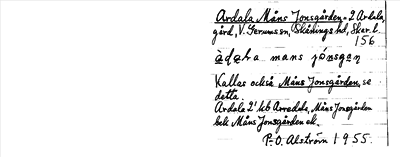 Ardala Måns Jonsgården = 2 Ardala,
gård, V. Gerums sn, Skånings hd, Skar. l.
156
mans
Kallas också Måns Jonsgården, se
detta.
Ardala 2' kb Arredala, Måns Jonsgården
bek Måns Jonsgården ek.
P.-O. Alström 1955.